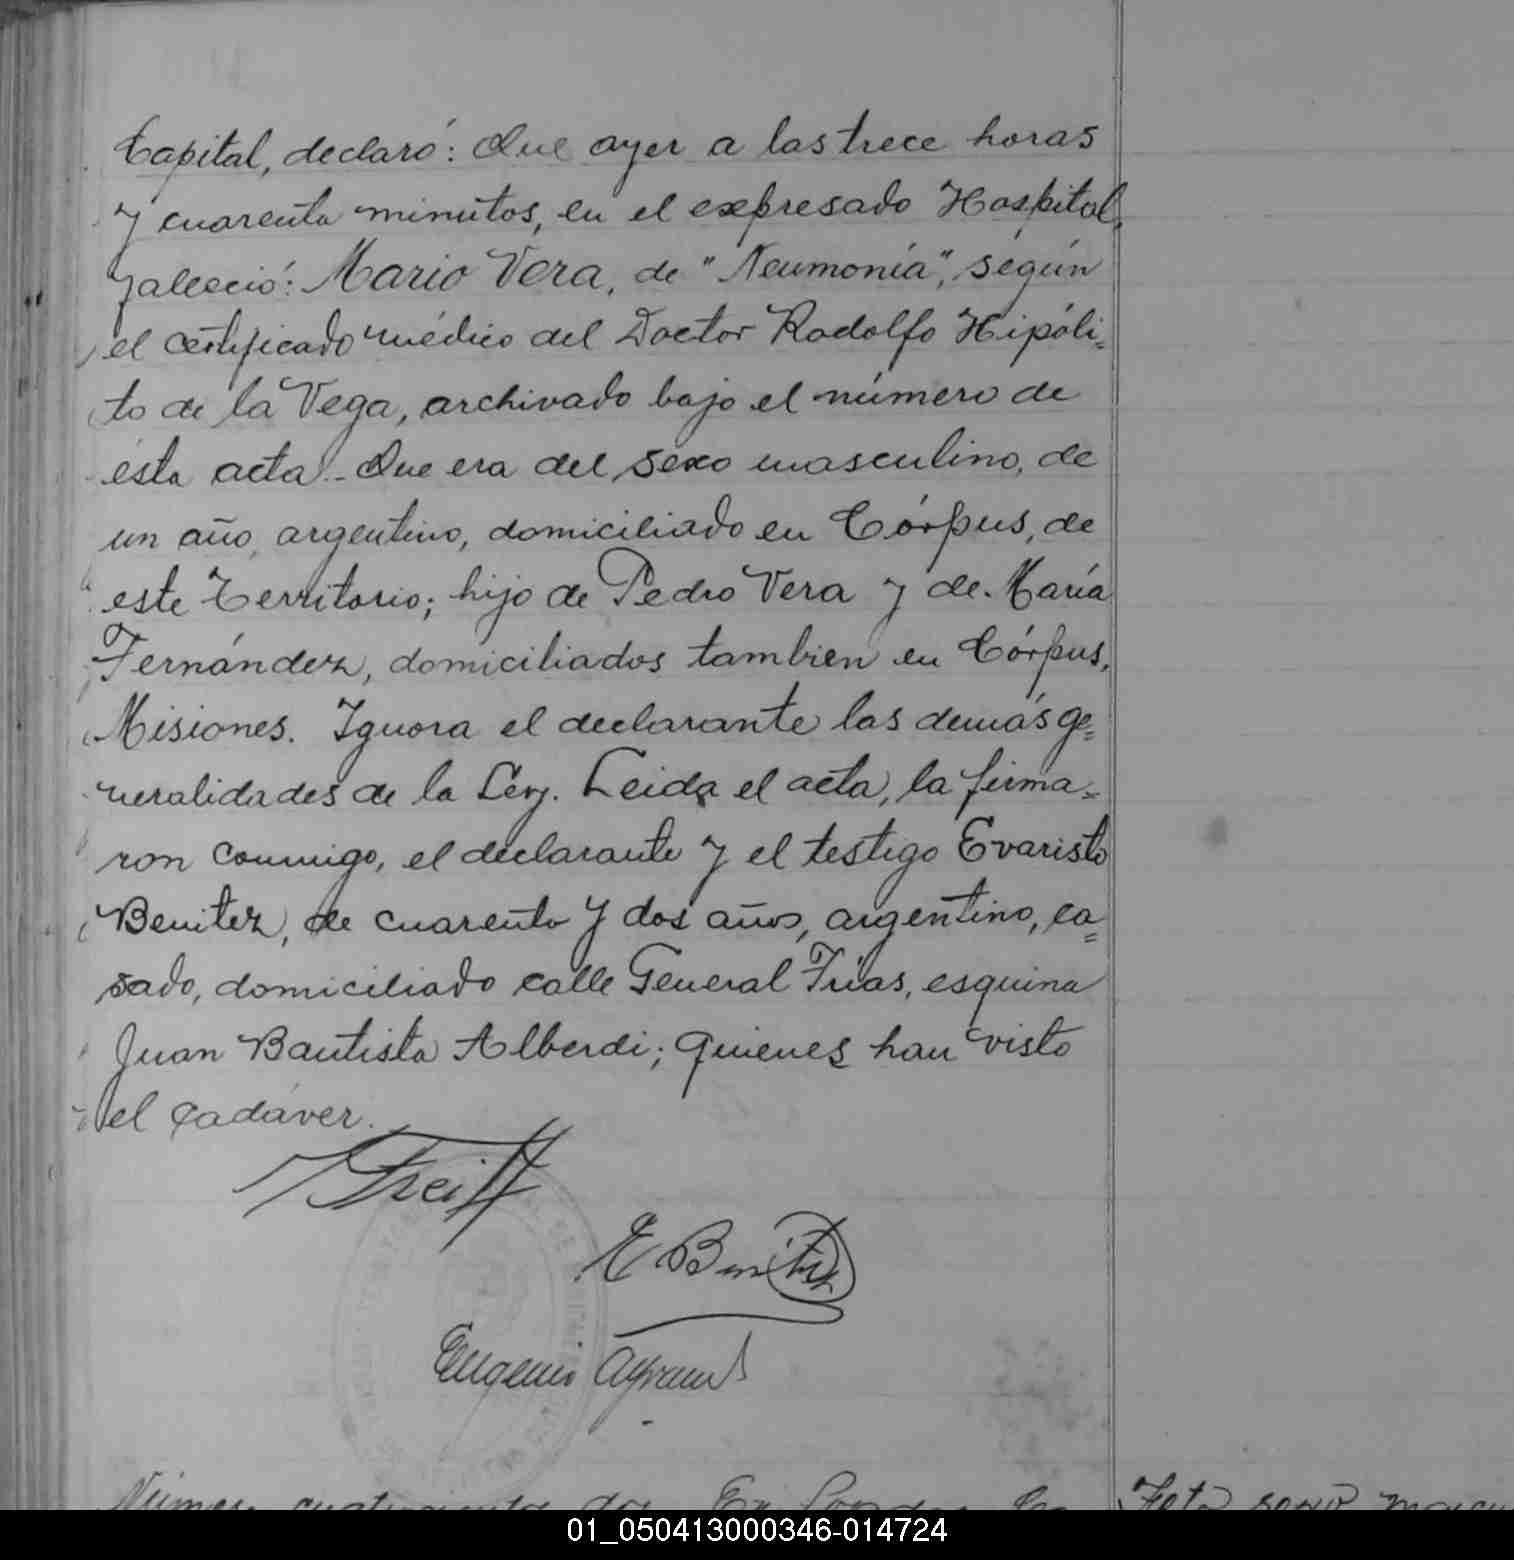 Capital, declaró: Que ayer a las trece horas
y cuarenta minutos, en el expresado Hospital,
falleció: Mario Vera, de "Neumonía", según
el certificado médico del Doctor Rodolfo Hipóli=
to de la Vega, archivado bajo el número de
ésta acta.- Que era del sexo masculino, de
un año, argentino, domiciliado en Córpus, de
este Territorio; hijo de Pedro Vera y de María
Fernández, domiciliados tambien en Córpus,
Misiones. Ignora el declarante las demás ge=
neralidades de la Ley. Leida el acta, la firma=
ron conmigo, el declarante y el testigo Evaristo
Benitez, de cuarenta y dos años, argentino, ca=
sado, domiciliado calle General Frias, esquina
Juan Bautista Alberdi; quienes han visto
el cadáver.
E Benitez
Eugenio
01_050413000346-014724